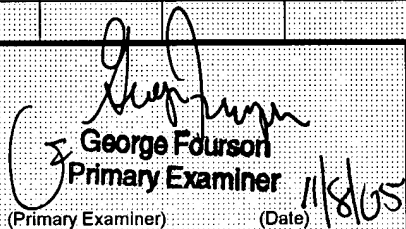 George Fourson
Primary Examiner 11/8/05
(Primary Examiner) (Date)